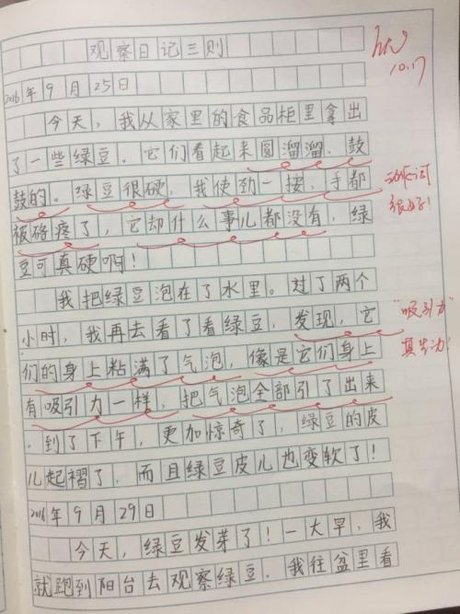 观察日记三则
10.17
2016年9月25日
今天，我从家里的食品柜里拿出
了一些绿豆。它们看起来圆溜溜、鼓
鼓的。绿豆很硬，我使劲一按，手都
动作词
很好！
被硌疼了，它却什么事儿都没有，绿
豆可真硬啊！
我把绿豆泡在了水里。过了两个
小时，我再去看了看绿豆，发现，它
"吸引力"
们的身上粘满了气泡，像是它们身上
真生动！
有吸引力一样，把气泡全部引了出来
。到了下午，更加惊奇了，绿豆的皮
儿起褶了，而且绿豆皮儿也变软了！
2016年9月29日
今天，绿豆发芽了！一大早，我
就跑到阳台去观察绿豆。我往盆里看